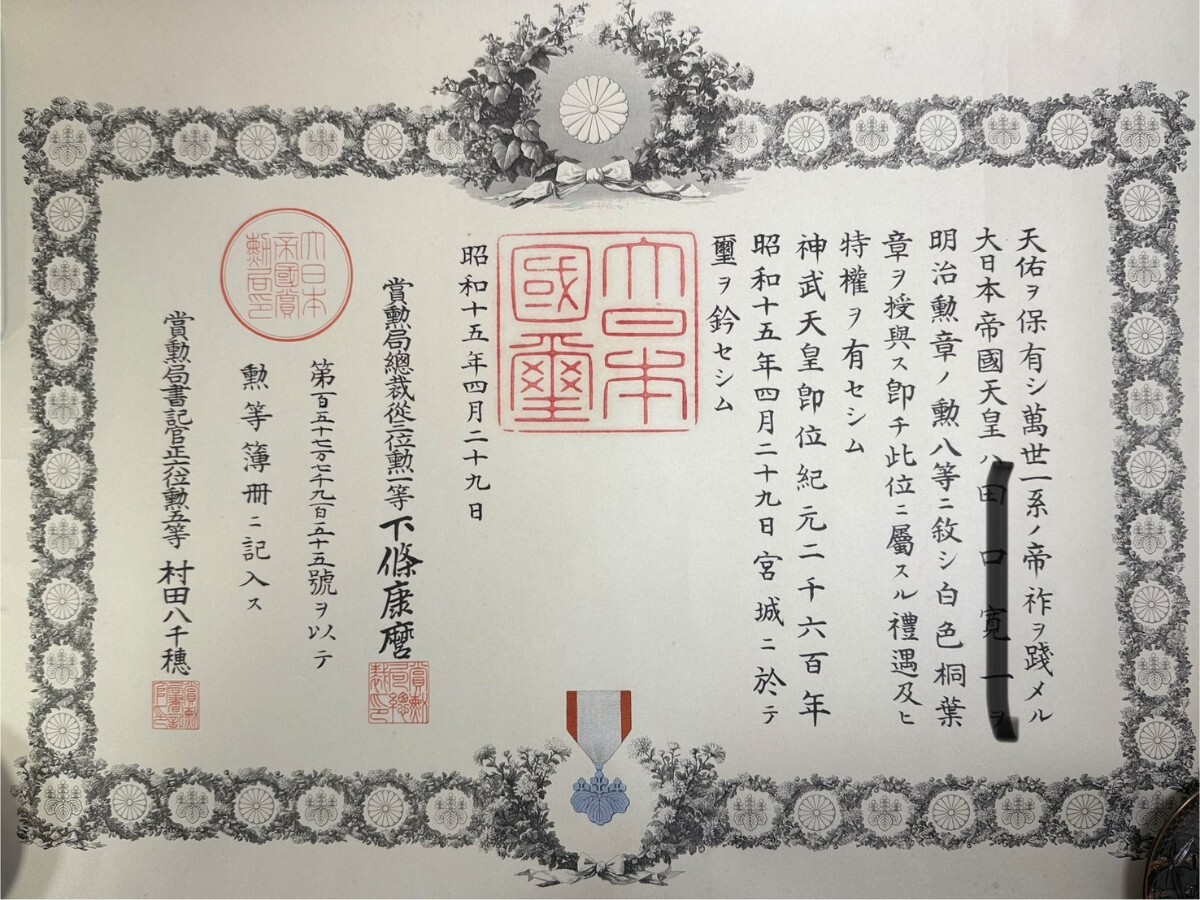 天佑ヲ保有シ萬世一系ノ帝祚ヲ踐メル
大日本帝國天皇ハ
明治勲章ノ勲八等ニ敘シ白色桐葉
章ヲ授與ス卽チ此位ニ屬スル禮遇及ヒ
特權ヲ有セシム
神武天皇卽位紀元二千六百年
昭和十五年四月二十九日宮城ニ於テ
璽ヲ鈐セシム
大日本國璽
昭和十五年四月二十九日
賞勲局總裁從三位勲一等下條康麿
賞勲局總裁印
第百五十七万七千九百五十五號ヲ以テ
勲等簿册ニ記入ス
大日本帝國賞勲局印
賞勲局書記官正六位勲五等 村田八千穗